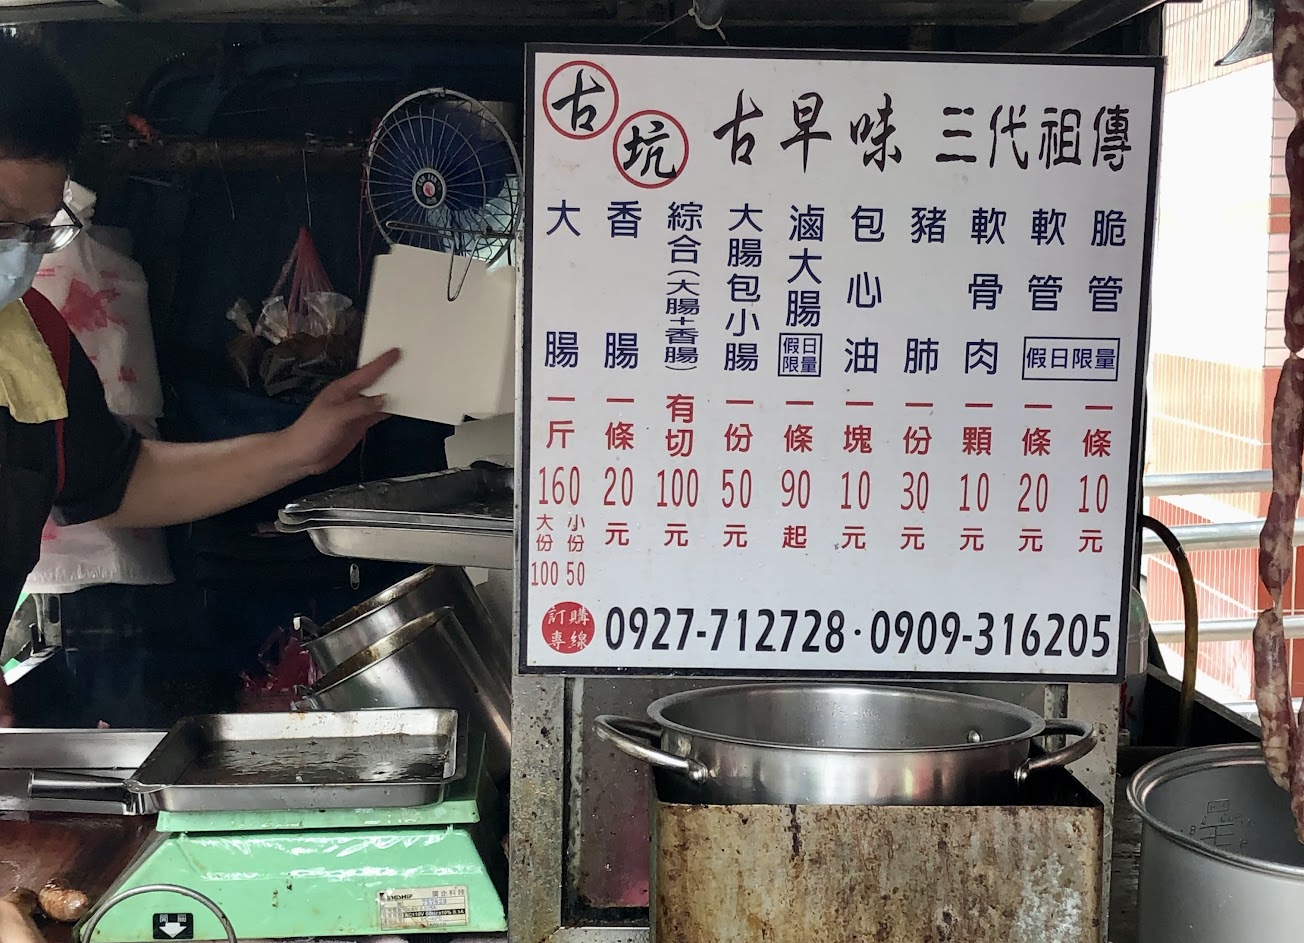 古坑 古早味 三代祖傳
大腸 一斤 160 大份 小份 100 50
香腸 一條 20元
綜合(大腸+香腸) 有切 100元
大腸包小腸 一份 50元
滷大腸 假日限量 一條 90起
包心油 一塊 10元
豬肺 一份 30元
軟骨肉 一顆 10元
軟管 一條 20元
脆管 一條 10元
假日限量
訂購專線 0927-712728·0909-316205